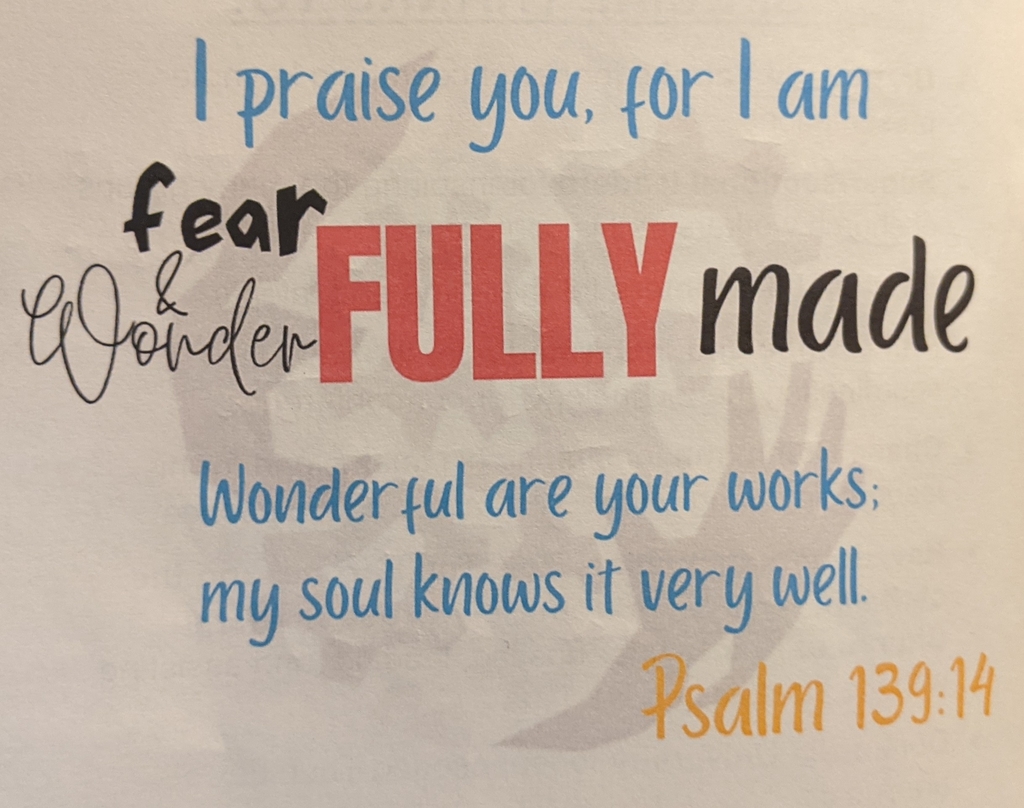 I praise you, for I am
fear
& Wonder FULLY made
Wonderful are your works;
my soul knows it very well.
Psalm 139:14